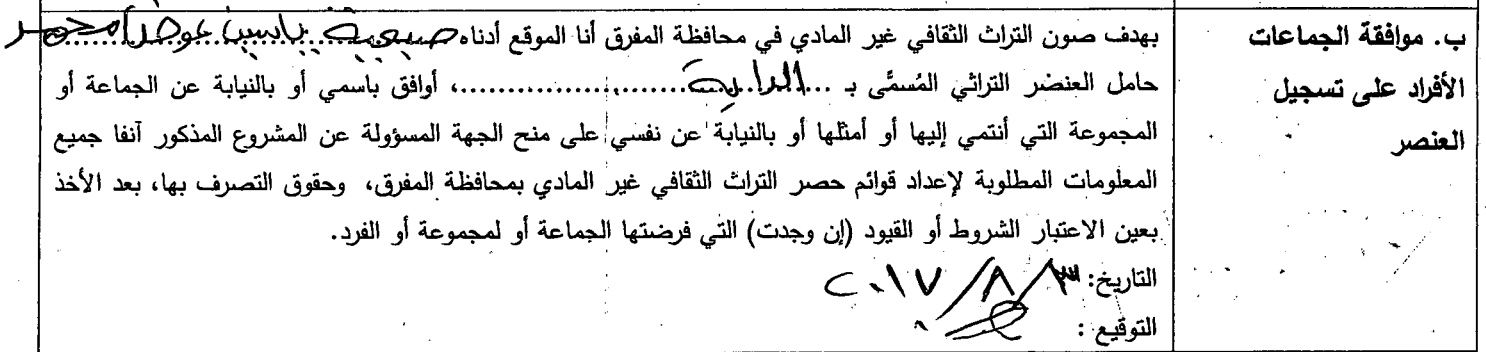 ب. موافقة الجماعات
الأفراد على تسجيل
العنصر
بهدف صون التراث الثقافي غير المادي في محافظة المفرق أنا الموقع أدناه صبحية ياسين عوض محمد
حامل العنصر التراثي المُسمَّى بـ ...الراية...................، أوافق باسمي أو بالنيابة عن الجماعة أو
المجموعة التي أنتمي إليها أو أمثلها أو بالنيابة عن نفسي على منح الجهة المسؤولة عن المشروع المذكور آنفا جميع
المعلومات المطلوبة لإعداد قوائم حصر التراث الثقافي غير المادي بمحافظة المفرق، وحقوق التصرف بها، بعد الأخذ
بعين الاعتبار الشروط أو القيود (إن وجدت) التي فرضتها الجماعة أو لمجموعة أو الفرد.
التاريخ: ٣/٨/٢٠١٧
التوقيع :